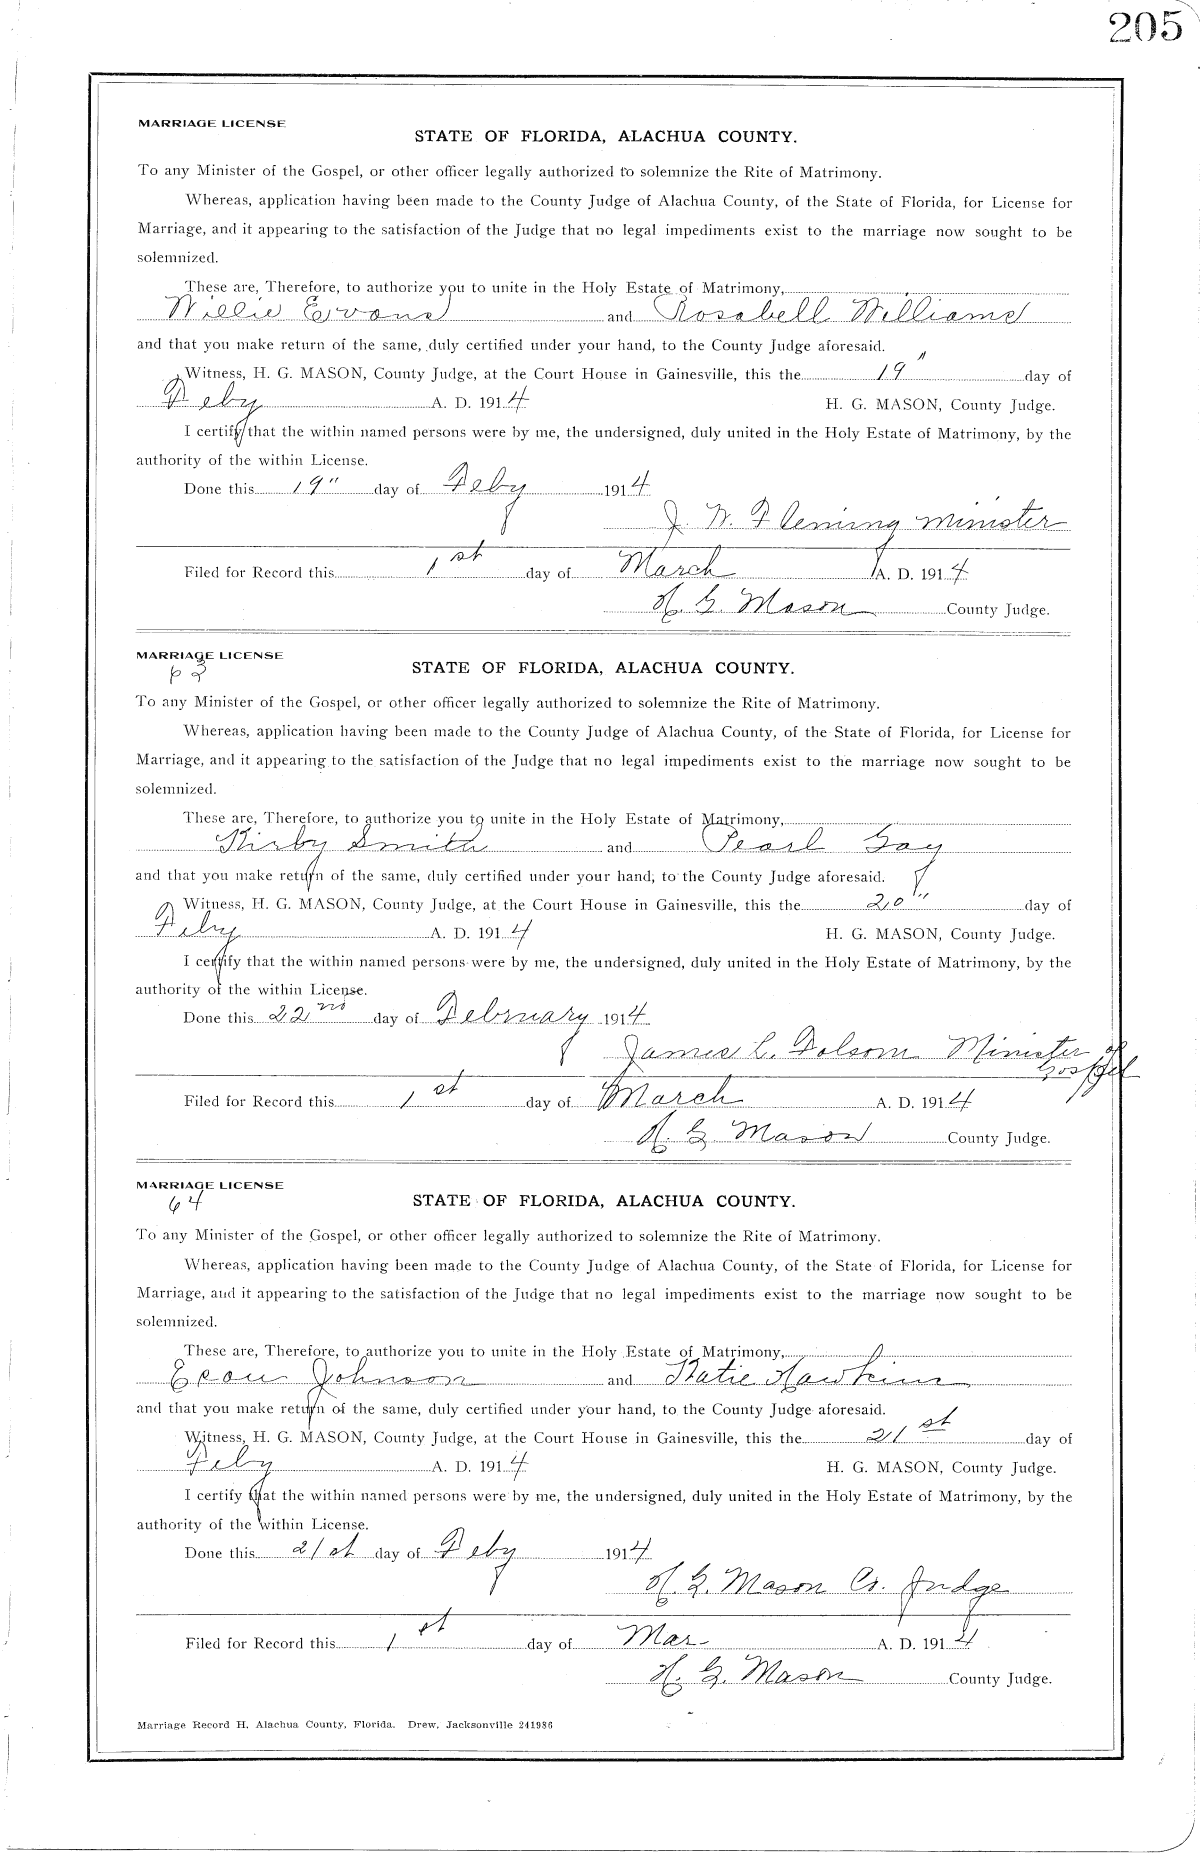 205
MARRIAGE LICENSE
STATE OF FLORIDA, ALACHUA COUNTY.
To any Minister of the Gospel, or other officer legally authorized to solemnize the Rite of Matrimony.
Whereas, application having been made to the County Judge of Alachua County, of the State of Florida, for License for
Marriage, and it appearing to the satisfaction of the Judge that no legal impediments exist to the marriage now sought to be
solemnized.
These are, Therefore, to authorize you to unite in the Holy Estate of Matrimony,
Willie Evans and Rosabell Williams
and that you make return of the same, duly certified under your hand, to the County Judge aforesaid.
Witness, H. G. MASON, County Judge, at the Court House in Gainesville, this the 19" day of
Feby A. D. 1914 H. G. MASON, County Judge.
I certify that the within named persons were by me, the undersigned, duly united in the Holy Estate of Matrimony, by the
authority of the within License.
Done this 19" day of Feby 1914
J. W. Fleming minister
Filed for Record this 1st day of March A. D. 1914
H. G. Mason County Judge.
MARRIAGE LICENSE
63
STATE OF FLORIDA, ALACHUA COUNTY.
To any Minister of the Gospel, or other officer legally authorized to solemnize the Rite of Matrimony.
Whereas, application having been made to the County Judge of Alachua County, of the State of Florida, for License for
Marriage, and it appearing to the satisfaction of the Judge that no legal impediments exist to the marriage now sought to be
solemnized.
These are, Therefore, to authorize you to unite in the Holy Estate of Matrimony,
Kirby Smith and Pearl Gay
and that you make return of the same, duly certified under your hand, to the County Judge aforesaid.
Witness, H. G. MASON, County Judge, at the Court House in Gainesville, this the 20" day of
Feby A. D. 1914 H. G. MASON, County Judge.
I certify that the within named persons were by me, the undersigned, duly united in the Holy Estate of Matrimony, by the
authority of the within License.
Done this 22nd day of February 1914
James L. Folsom Minister of
Gospel
Filed for Record this 1st day of March A. D. 1914
H. G. Mason County Judge.
MARRIAGE LICENSE
64
STATE OF FLORIDA, ALACHUA COUNTY.
To any Minister of the Gospel, or other officer legally authorized to solemnize the Rite of Matrimony.
Whereas, application having been made to the County Judge of Alachua County, of the State of Florida, for License for
Marriage, and it appearing to the satisfaction of the Judge that no legal impediments exist to the marriage now sought to be
solemnized.
These are, Therefore, to authorize you to unite in the Holy Estate of Matrimony,
Johnson and Katie Hawkins
and that you make return of the same, duly certified under your hand, to the County Judge aforesaid.
Witness, H. G. MASON, County Judge, at the Court House in Gainesville, this the 21st day of
Feby A. D. 1914 H. G. MASON, County Judge.
I certify that the within named persons were by me, the undersigned, duly united in the Holy Estate of Matrimony, by the
authority of the within License.
Done this 21st day of Feby 1914
H. G. Mason Co. Judge
Filed for Record this 1st day of Mar- A. D. 1914
H. G. Mason County Judge.
Marriage Record H, Alachua County, Florida. Drew, Jacksonville 241986